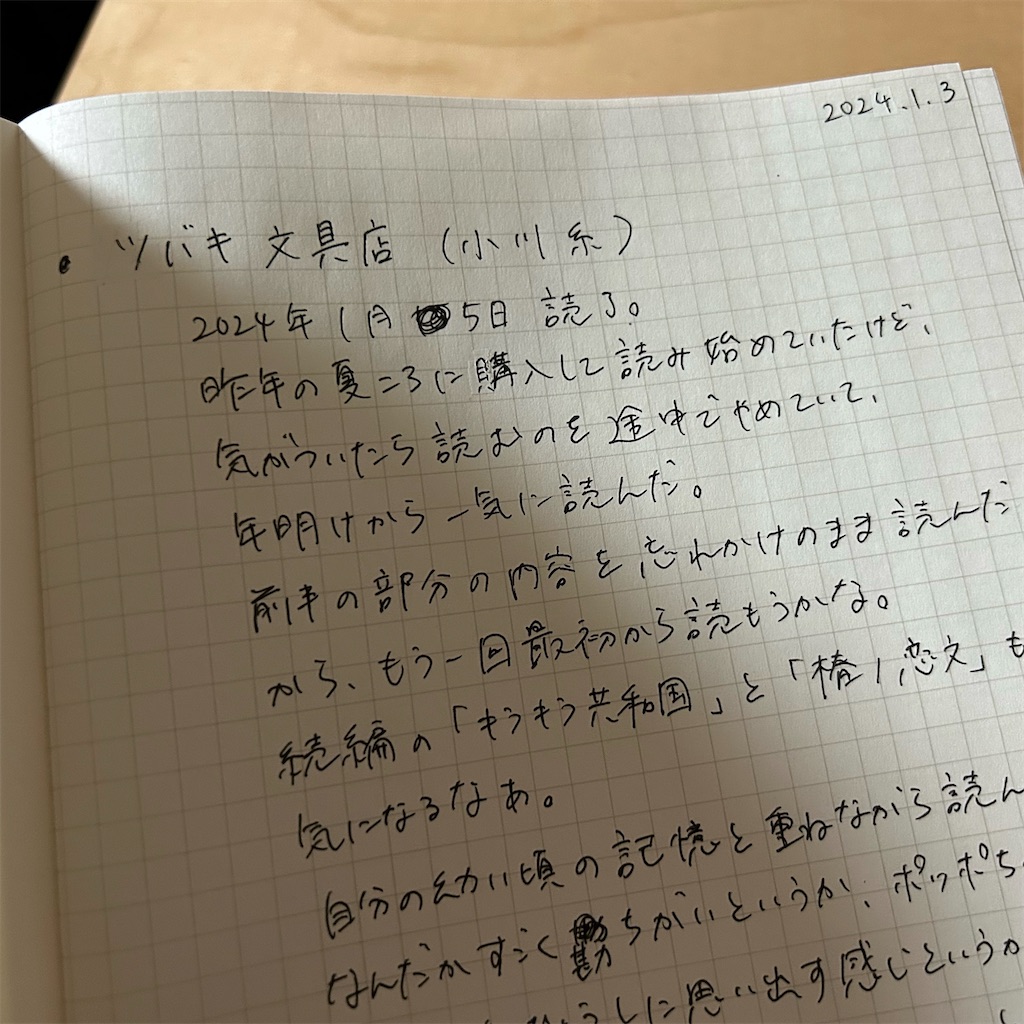 2024.1.3
・ツバキ文具店（小川糸）
2024年1月5日 読了。
昨年の夏ころに購入して読み始めていたけど、
気がついたら読むのを途中でやめていて、
年明けから一気に読んだ。
前半の部分の内容を忘れかけのまま読んだ
から、もう一回最初から読もうかな。
続編の「キラキラ共和国」と「椿ノ恋文」も
気になるなぁ。
自分の幼い頃の記憶と重ねながら読ん
なんだかすごく勘ちがいというか、ポッポち
に思い出す感じというか